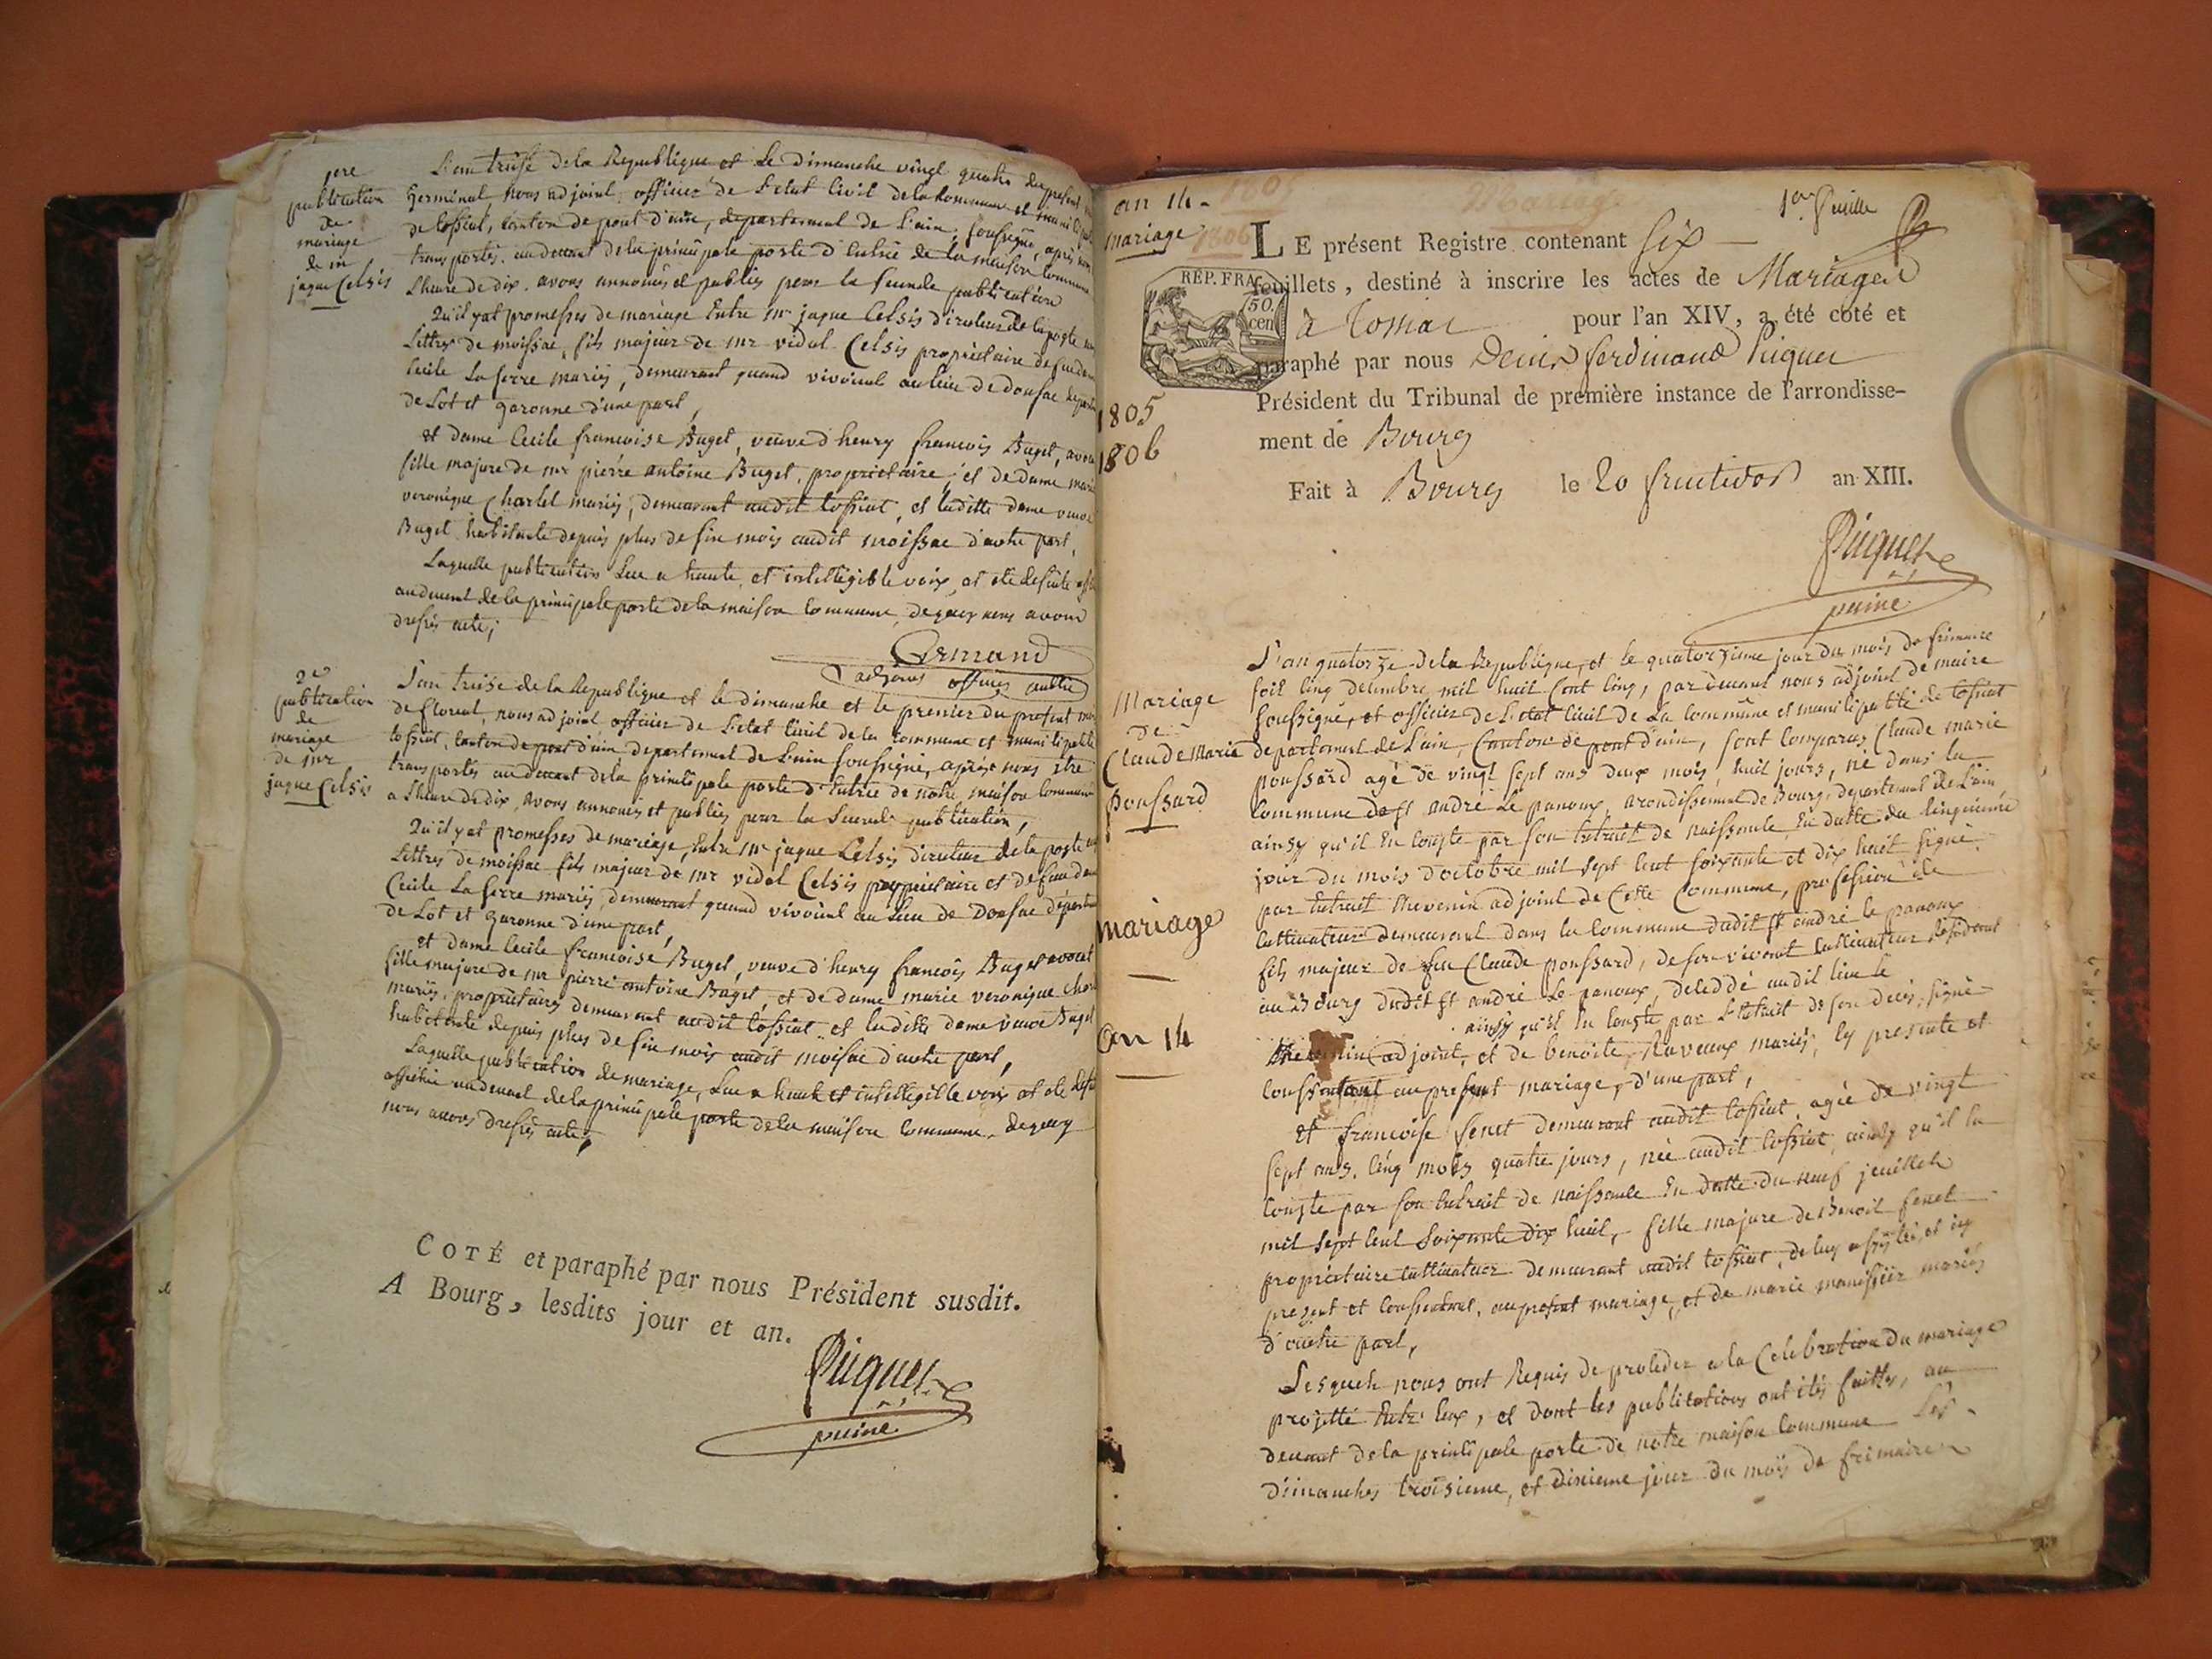 1ere
publication
de
mariage
de mr
jaque Celsis
L'an treise de la Republique et Le dimanche vingt quatre du present
Germinal, nous adjoint, officier de L'etat Civil de la Commune et
de tossiat, canton de pont d'ain, departement de L'ain, soussigné, après
transportés, au devant de la principale porte d'entrée de la maison Commune
L'heure de dix, avons annoncés et publiés pour la seconde publication
Qu'il y at promesses de mariage Entre mr jaque Celsis directeur de la poste aux
Lettres de moissac, fils majeur de mr vidal Celsis propriétaire defuedame
Cécile Laserre mariés, demeurant quand vivoient au lieu de donsac
de Lot et garonne d'une part,
et dame Cecile francoise Buget, veuve d'henry francois Buget, avocat
fille majure de mr pierre antoine Buget, propriétaire, et de dame marie
veronique Charlet mariés, demeurant audit tossiat, et laditte dame veuve
Buget habitante depuis plus de six mois audit moissac d'autre part,
Laquelle publication Lue a haute, et intelligible voix, at été desuite
audevant de la principale porte de la maison commune, dequoy nous avons
dressés acte;
Armand
adjoint officier public
2e
publication
de
mariage
de mr
jaque Celsis
L'an treise de la Republique et le dimanche et le premier du present mois
de floreal, nous adjoint officier de L'etat Civil de la Commune et municipalité
tossiat, canton de pont d'ain departement de L'ain soussigné, après nous etre
transportés au devant de la principale porte d'entrée de notre maison Commune
a L'heure de dix, avons annoncés et publiés pour la Seconde publication,
Qu'il y at promesses de mariage, Entre mr jaque Celsis directeur de la poste aux
Lettres de moissac fils majeur de mr vidal Celsis proprietaire et defuedame
Cecile Laserre mariés demeurant quand vivoient au Lieu de Donsac
de Lot et garonne d'une part,
et dame Cecile francoise Buget, veuve d'henry francois Buget avocat
fille majure de mr pierre antoine Buget, et de dame marie veronique
mariés, propriétaires demeurant audit tossiat et laditte dame veuve Buget
habitante depuis plus de six mois audit moissac d'autre part,
Laquelle publication de mariage, Lue a haute et intelligible voix at été
affichée audevant de la principale porte de la maison Commune, dequoy
nous avons dressés acte,
COTÉ et paraphé par nous Président susdit.
A Bourg, lesdits jour et an.
Piquet
puiné
an 14 - 1805
mariage 1806
Mariage
1er feuille
LE présent Registre contenant six
RÉP. FRA.
50.
cen
feuillets, destiné à inscrire les actes de Mariages
à tossiat pour l'an XIV, a été coté et
paraphé par nous Denis ferdinand Piquet
Président du Tribunal de première instance de l'arrondisse-
ment de Bourg
Fait à Bourg le 20 fructidor an XIII.
1805
1806
Piquet
puiné
Mariage
de
Claude Marie
poussard
mariage
an 14
L'an quatorze de la Republique, et le quatorzieme jour du mois de frimaire
soit cinq decembre mil huit Cent Cinq, par devant nous adjoint de maire
soussigné, et officier de L'etat Civil de La Commune et municipalité de tossiat
departement de L'ain, Canton de pont d'ain, sont comparus Claude marie
poussard agé de vingt sept ans deux mois, huit jours, né dans la
Commune de st andré Le panoux, arondissement de Bourg, departement de L'ain
ainsy qu'il En conste par son Extrait de naissance En datte du cinquieme
jour du mois d'octobre mil sept cent soixante et dix huit signé
par Extrait thevenin adjoint de Cette Commune, profession de
Cultivateur demeurant dans la Commune dudit St andré le panoux
fils majeur de feu Claude poussard, de son vivant Cultivateur Résidant
au Bourg dudit St andré Le panoux, décéddé audit lieu le
ainsy qu'il En Conste par L'Extrait de son décès, signé
thevenin adjoint, et de benoite Raveaux mariés, Cy presente et
Consentant au present mariage, d'une part,
et francoise fenet demeurant audit tossiat, agée de vingt
sept ans, Cinq mois quatre jours, née audit tossiat, ainsy qu'il En
Conste par son Extrait de naissance En datte du neuf jeuillet
mil sept cent Soixante dix huit, fille majure de Benoit fenet
propriétaire Cultivateur demeurant audit tossiat, de luy assistée, et icy
present et Consentant, au present mariage, et de marie manissier mariés
d'autre part,
Lesquels nous ont Requis de proceder a la Celebration du mariage
projetté Entr'Eux, et dont les publications ont étés faittes, au
devant de la principale porte de notre maison Commune Les
dimanches troisieme, et dixieme jour du mois de frimaire